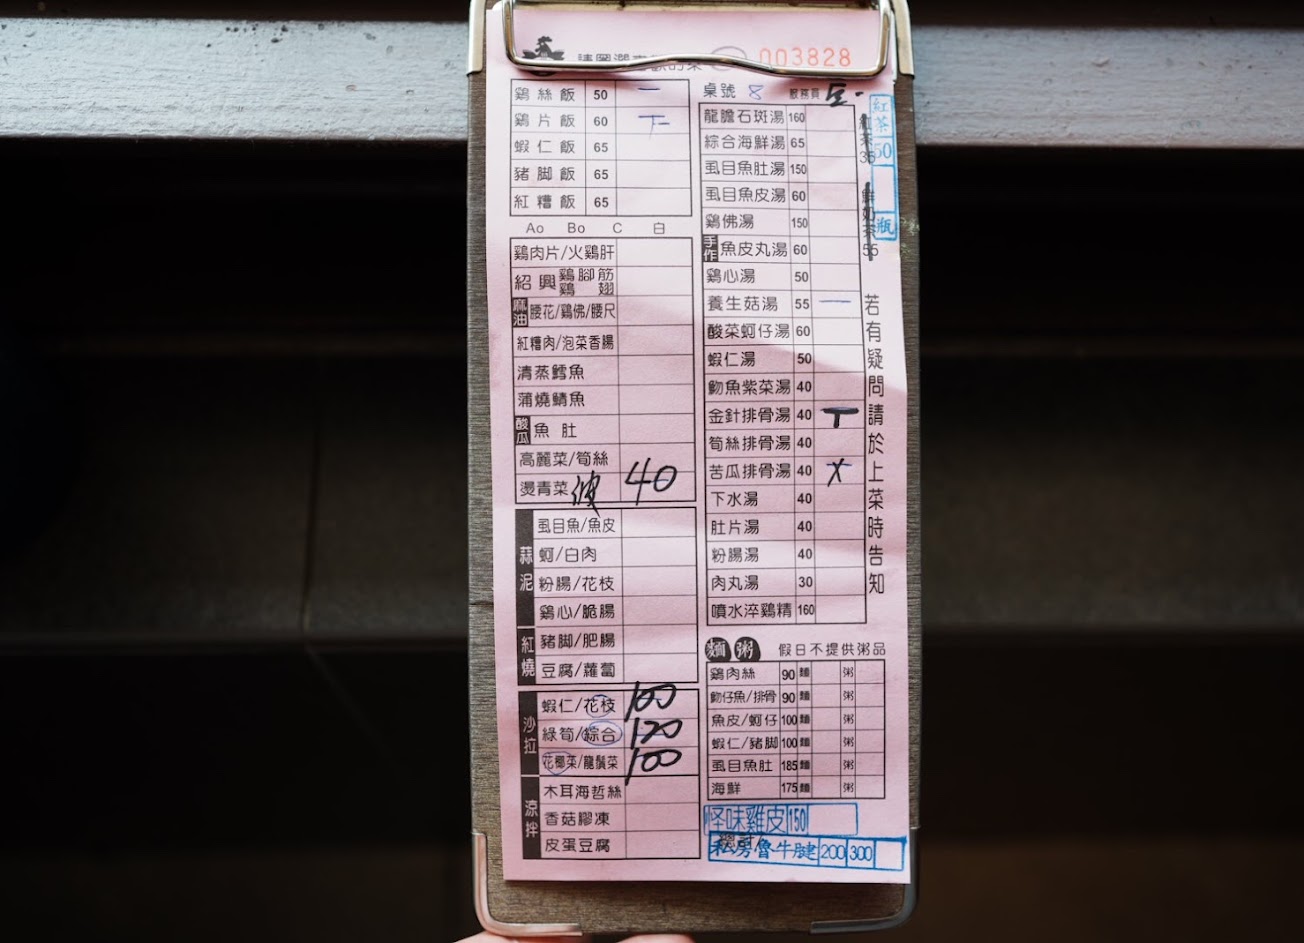 003828
雞絲飯 50 一
雞片飯 60 下
蝦仁飯 65
豬脚飯 65
紅糟飯 65
Ao Bo C 白
雞肉片/火雞肝
紹興 雞腳筋 雞翅
麻油 腰花/雞佛/腰尺
紅糟肉/泡菜香腸
清蒸鱈魚
蒲燒鯖魚
酸瓜 魚肚
高麗菜/筍絲
燙青菜 40
蒜泥
虱目魚/魚皮
蚵/白肉
粉腸/花枝
雞心/脆腸
紅燒
豬脚/肥腸
豆腐/蘿蔔
沙拉
蝦仁/花枝 100
綠筍/綜合 120
花椰菜/龍鬚菜 100
涼拌
木耳海哲絲
香菇膠凍
皮蛋豆腐
桌號 8 服務員
龍膽石斑湯 160
綜合海鮮湯 65
虱目魚肚湯 150
虱目魚皮湯 60
雞佛湯 150
手作 魚皮丸湯 60
雞心湯 50
養生菇湯 55 一
酸菜蚵仔湯 60
蝦仁湯 50
魩魚紫菜湯 40
金針排骨湯 40 T
筍絲排骨湯 40
苦瓜排骨湯 40
下水湯 40
肚片湯 40
粉腸湯 40
肉丸湯 30
噴水淬雞精 160
紅茶 35
鮮奶茶 55
紅茶 50 瓶
若有疑問請於上菜時告知
麵 粥 假日不提供粥品
雞肉絲 90 麵 粥
魩仔魚/排骨 90 麵 粥
魚皮/蚵仔 100 麵 粥
蝦仁/豬脚 100 麵 粥
虱目魚肚 185 麵 粥
海鮮 175 麵 粥
怪味雞皮 150
私房魯牛腱 200 300